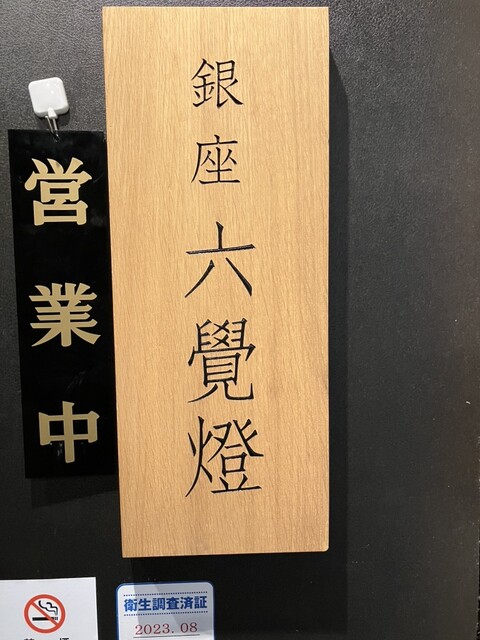 営業中
銀座 六覺燈
衛生調査済証
2023.08